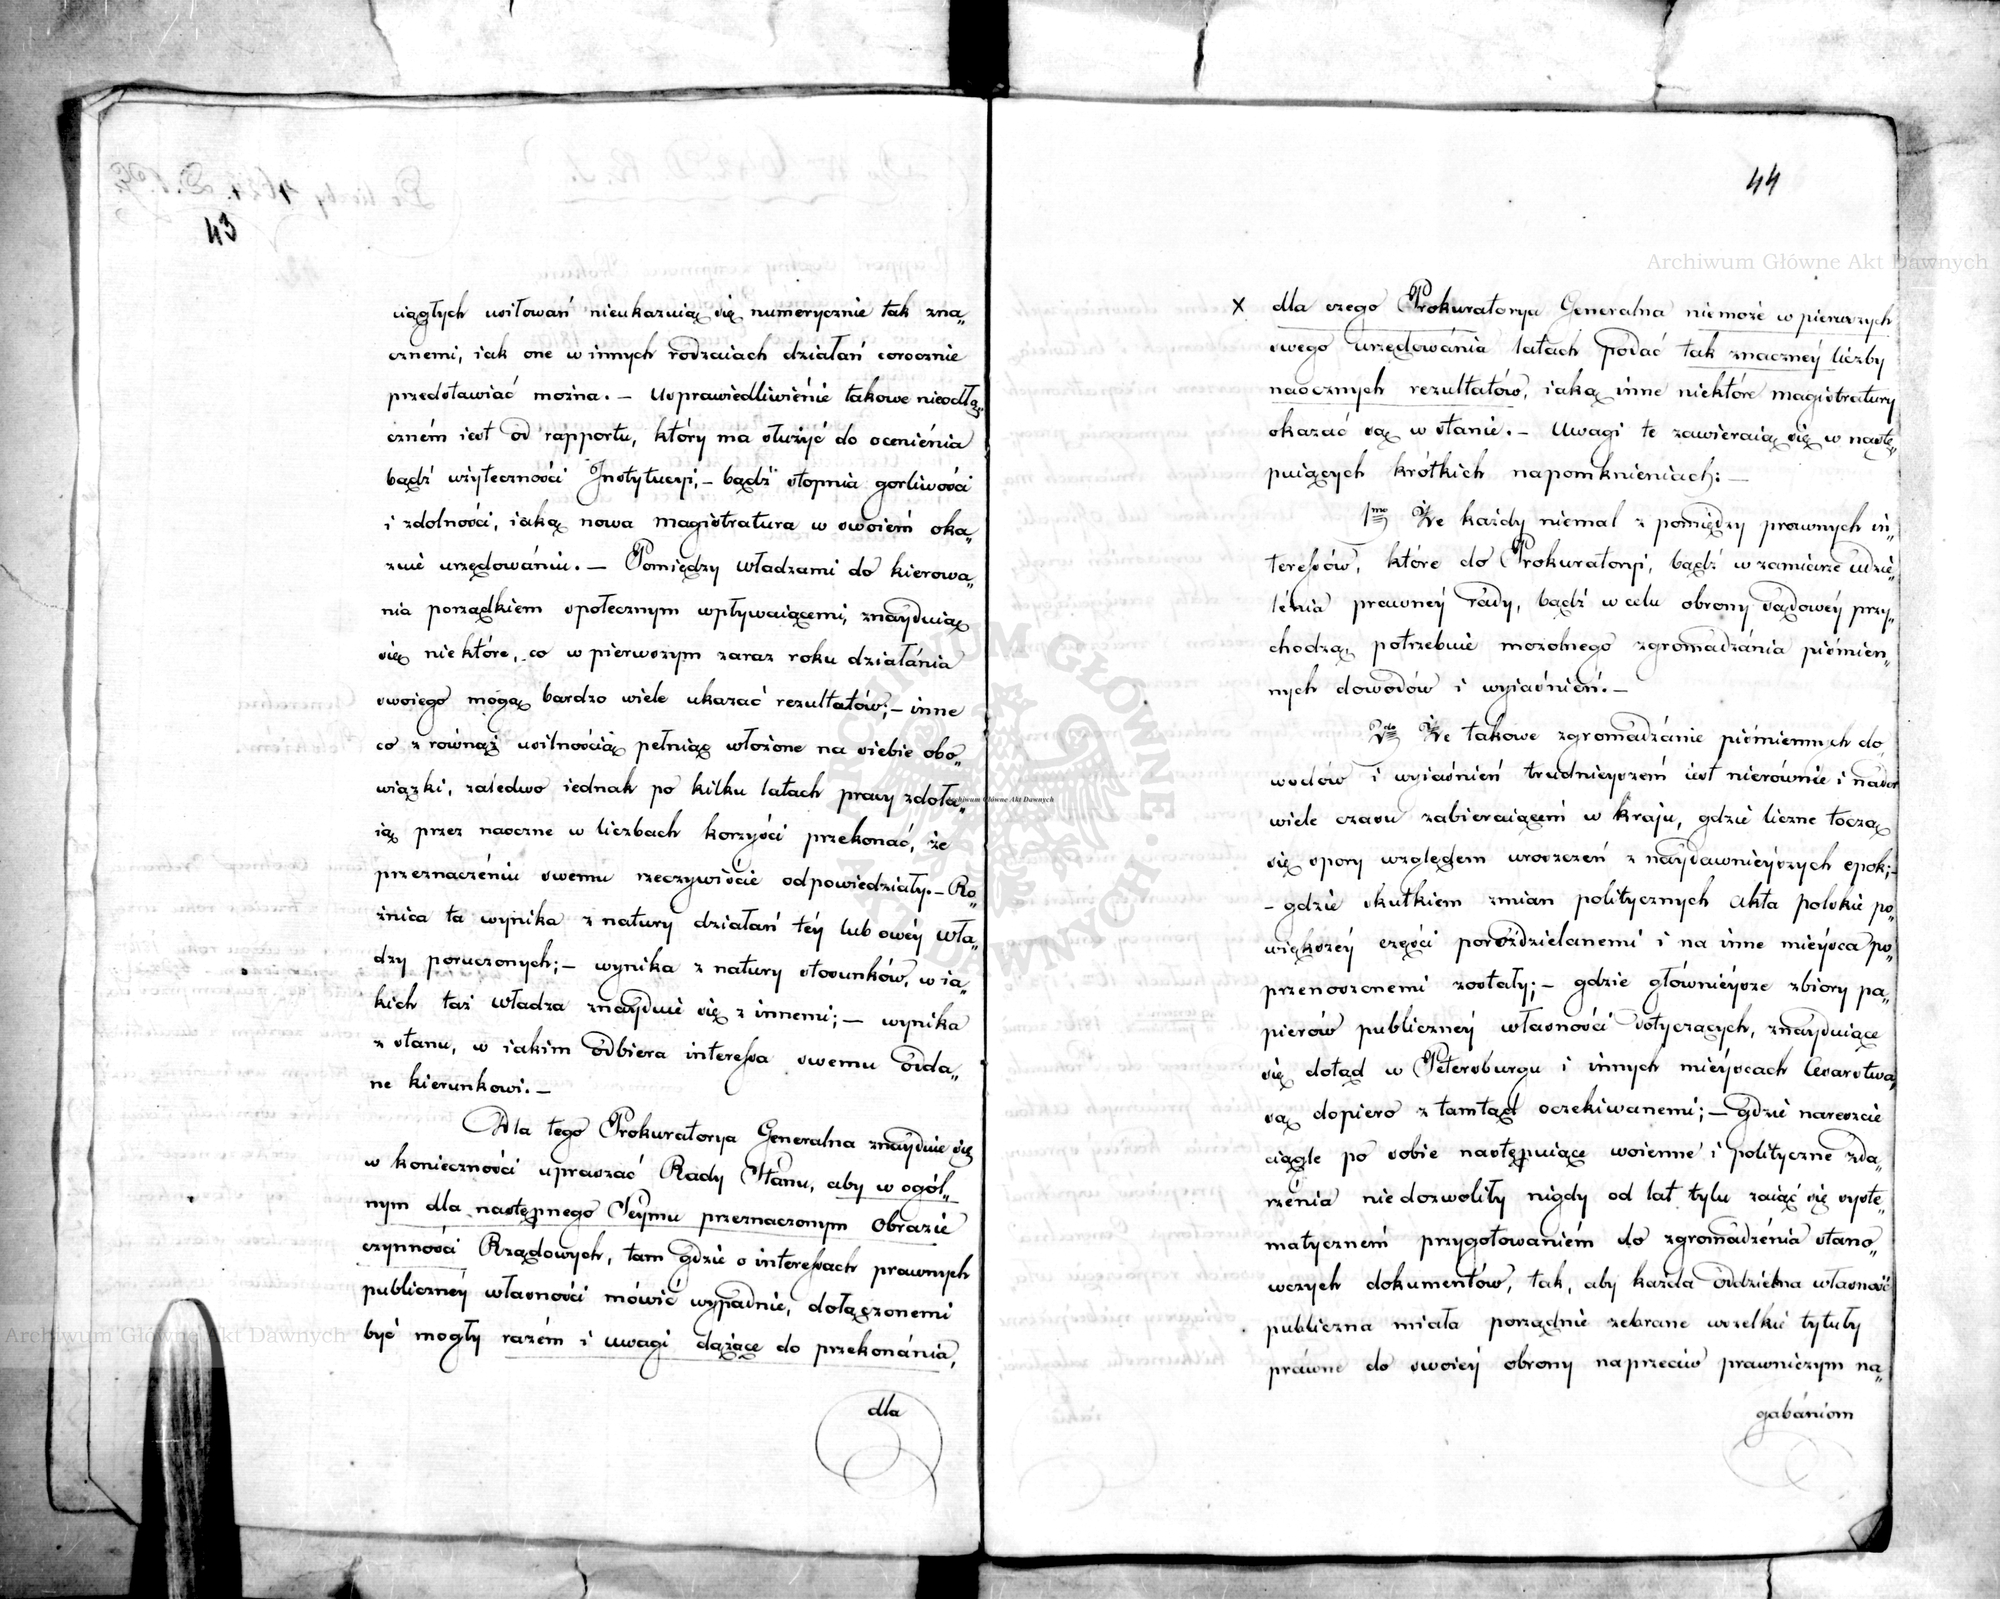 43
ciągłych usiłowań nieukazuią się numerycznie tak zna„
cznemi, iak one w innych rodzaiach działań corocznie
przedstawiać można. – Usprawiedliwiénié takowe nieodłą„
czném iest od rapportu, który ma służyć do oceniénia
bądź użyteczności Instytucyi, – bądź stopnia gorliwości
i zdolności, iaką nowa magistratura w swoiém oka„
zuie urzędowániu. – Pomiędzy władzami do kierowa„
nia porządkiem społecznym wpływaiącemi, znayduią
się niektóre, co w pierwszym zaraz roku działánia
swoiego mogą bardzo wiele ukazać rezultatów; – inne
co z równąż usilnością pełniąc włożone na siebie obo„
wiązki, zaledwo iednak po kilku latach pracy zdoła„
ią przez naoczne w liczbach korzyści przekonać, że
przeznaczéniu swemu rzeczywiście odpowiedziały. – Ro„
żnica ta wynika z natury działań téy lub owéy wła„
dzy poruczonych; – wynika z natury stosunków, w ia„
kich taż władza znayduie się z innemi; – wynika
z stanu, w iakim odbiera interessa swemu odda„
ne kierunkowi. –
Dla tego Prokuratorya Generalna znayduie się
w konieczności upraszać Rady Stanu, aby w ogól„
nym dla następnego Seymu przeznaczonym Obrazie
czynności Rządowych, tam gdzie o interessach prawnych
publicznéy własności mówić wypadnie, dołączonemi
być mogły razém i uwagi dążące do przekonánia,
dla
44
x dla czego Prokuratorya Generalna niemoże w pierwszych
swego urzędowánia latach podać tak znacznéy liczby
naocznych rezultatów, iaką inne niektóre magistratury
okazać są w stanie. – Uwagi te zawieraią się w nastę„
puiących krótkich napomknieniach: –
1mo Że każdy niemal z pomiędzy prawnych in„
teressów, które do Prokuratoryi, bądź w zamiarze udzie„
lénia prawnéy rady, bądź w celu obrony sądowéy przy„
chodzą, potrzebuie mozolnego zgromadzánia piśmien„
nych dowodów i wyiaśnień. –
2do Że takowe zgromadzánie piśmiennych do„
wodów i wyiaśnień trudnieyszém iest nierównie i nader
wiele czasu zabieraiącém w kraju, gdzie liczne toczą
się spory względem uroszczeń z naydawnieyszych epok; –
– gdzie skutkiem zmian politycznych Akta polskie po„
większéy części porozdzielanemi i na inne mieysca po„
przenoszonemi zostały; – gdzie główniéysze zbiory pa„
pierów publicznéy własności dotyczących, znayduiące
się dotąd w Petersburgu i innych mieyscach Cesarstwa,
są dopiero z tamtąd oczekiwanemi; – gdzie nareszcie
ciągle po sobie następuiące woienne i polityczne zda„
rzénia niedozwoliły nigdy od lat tylu zaiąć się syste„
matyczném przygotowaniém do zgromadzénia stano„
wczych dokumentów, tak, aby każda oddzielna własność
publiczna miała porządnie zebrane wszelkié tytuły
prawne do swoiéy obrony naprzeciw prawniczym na„
gabániom
Archiwum Główne Akt Dawnych
Archiwum Główne Akt Dawnych
Archiwum Główne Akt Dawnych
ARCHIWUM GŁÓWNE · AKT DAWNYCH ·